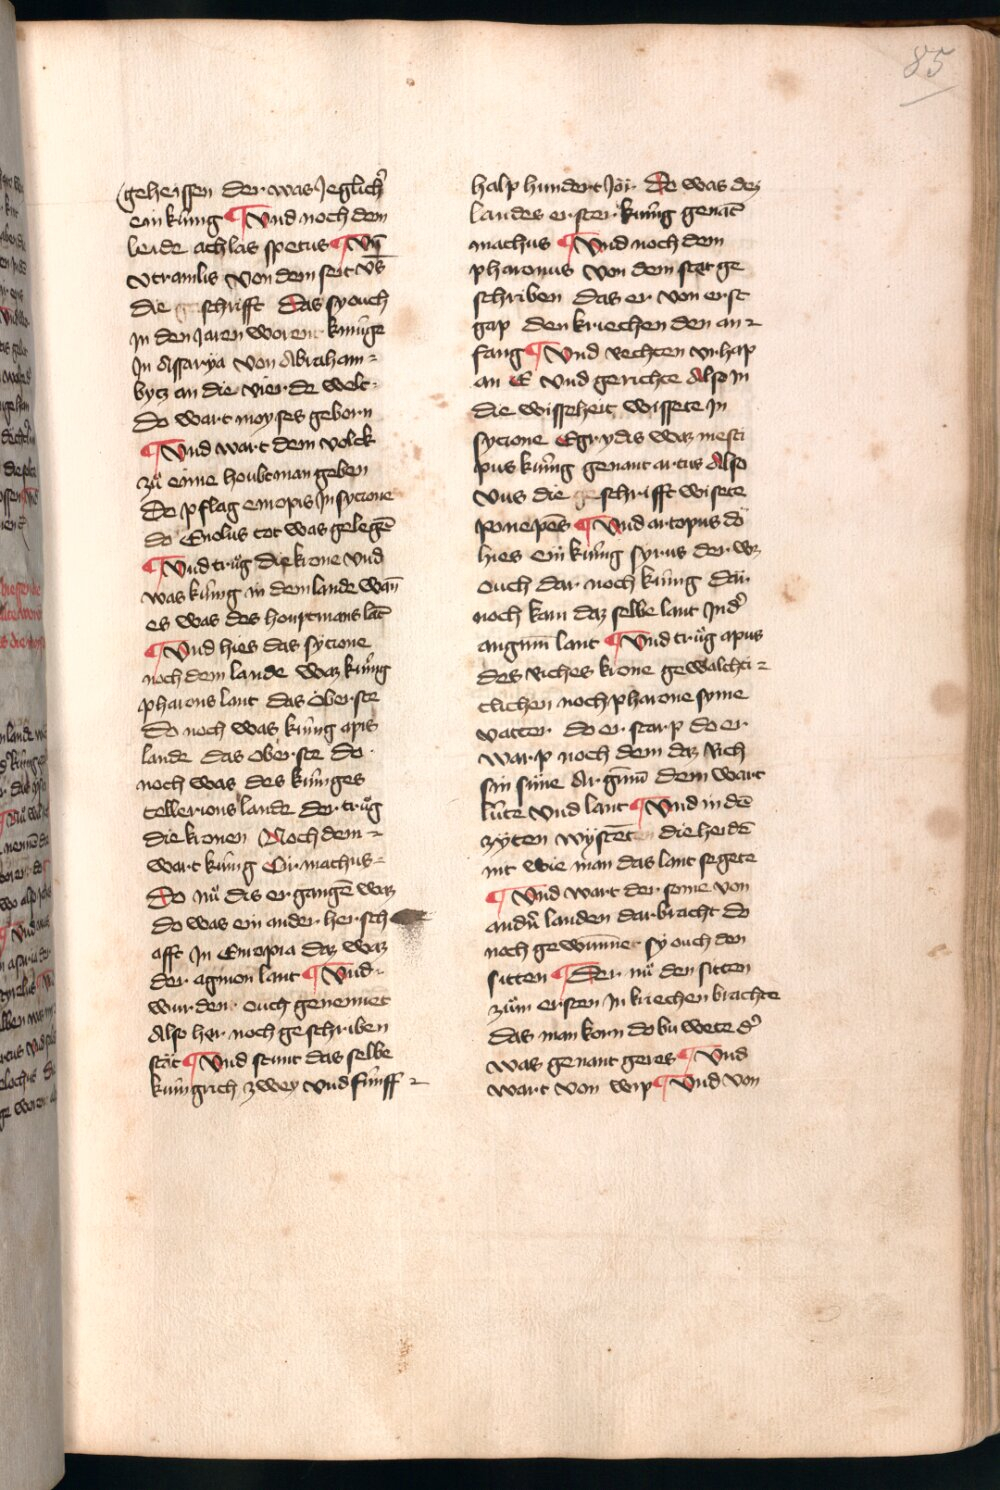 85
geheissen der was Jeglich'
ein kúnig ¶ Vnd noch dem
leide achlas spetus ¶ Vn̄
vtramlis von dem seit vs
die schrifft Das sy ouch
Jn den Jaren woren kúnige
Jn Assarya von Abraham
bytz an die vierde welt
do wart moyses geborn
¶ Vnd wart dem volck
zů eime houbtman geben
Do pflag emopis Jn sycione
do Enolus tot was gelegē
¶ Vnd trůg die krone vnd
was kúnig in dem lande wan̄
es was des houptmans lāt
¶ Vnd hies das sycione
noch dem lande waz kúnig
pharons lant das oberste
do noch was kúnig apis
lande das oberste do
noch was des kúniges
tellerions lande der trůg
die kronen Noch dem
wart kúnig Cirmachus
Do nů dis ergangē waz
do was ein ander hersch
afft Jn Emropia daz waz
der agmon lant ¶ Vnd
wurden ouch genennet
Also her noch geschriben
stāt ¶ Vnd stunt das selbe
kúnigrich zwey vnd fúnff
halp hundert Jor Do was dez
landes erster kúnig genāt
machus ¶ Vnd noch dem
pharonus von dem stet ge
schriben das er von erst
gap den kriechen den an
fang ¶ Vnd rechten vrhap
an E vnd gerichte Also in
die wisseheit wissete Jn
sycione Egrydis waz mesti
pus kúnig genant artus Also
vns die schrifft wisete
ponepēs ¶ Vnd artopus do
hies ein kúnig syrus der wz
ouch dar noch kúnig dar
noch kam daz selbe lant Jnd'
angrim lant ¶ Vnd trůg apus
des riches krone gewalchti
clichen noch pharone syme
vatter do er starp do er
warp noch dem daz Rich
sin súne Argim dem wart
lúte vnd lant ¶ Vnd in dē
zyten wystēt die heidē
nit wie man das lant segete
¶ Vnd wart der some von
andn̄ landen darbracht do
noch gewunne sy ouch den
sitten ¶ Der nů den sitten
zům ersten Jn kriechen brachte
das man korn do buwete d'
was genant geres ¶ Vnd
wart von wip ¶ Vnd von